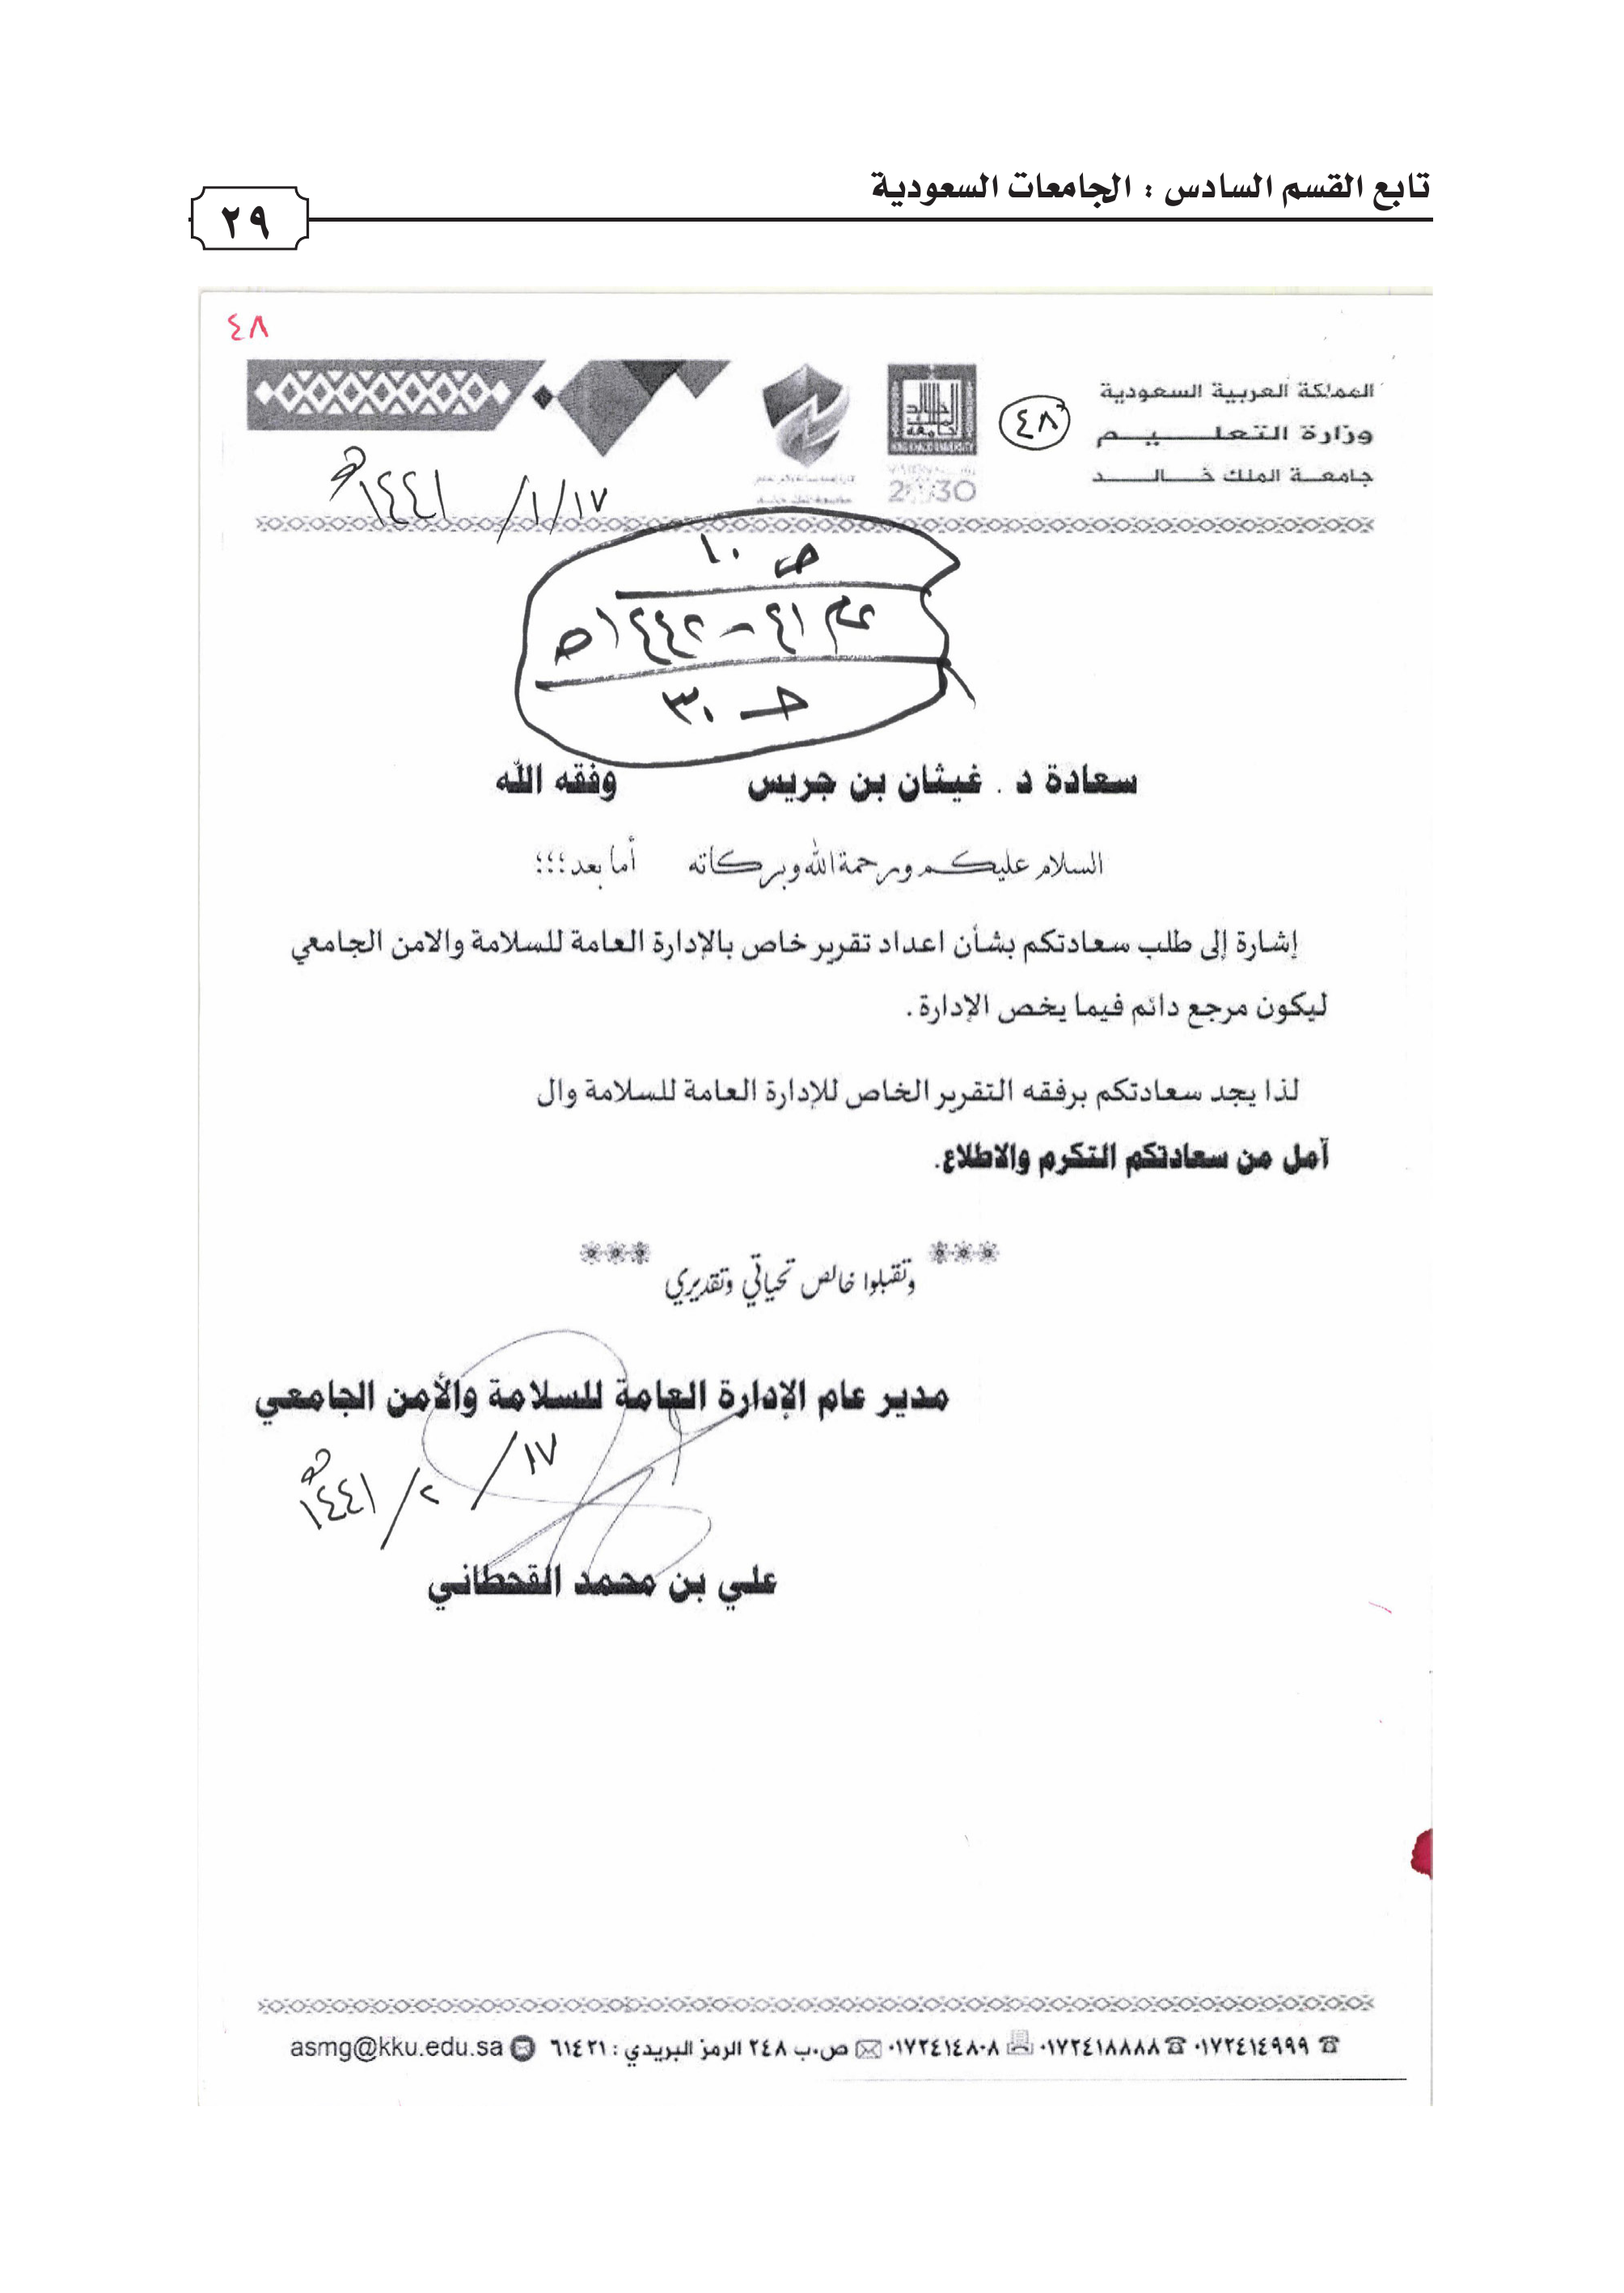 تابع القسم السادس : الجامعات السعودية
٢٩
٤٨
المملكة العربية السعودية
وزارة التعليم
جامعة الملك خالد
٤٨
2030
١٧/١/١٤٤١هـ
ص ١٠
عام ٤١ - ١٤٤٢هـ
حـ ٣٠
سعادة د . غيثان بن جريس وفقه الله
السلام عليكم ورحمة الله وبركاته أما بعد ؛؛؛
إشارة إلى طلب سعادتكم بشأن اعداد تقرير خاص بالإدارة العامة للسلامة والامن الجامعي
ليكون مرجع دائم فيما يخص الإدارة .
لذا يجد سعادتكم برفقه التقرير الخاص للإدارة العامة للسلامة وال
آمل من سعادتكم التكرم والاطلاع.
وتقبلوا خالص تحياتي وتقديري
مدير عام الإدارة العامة للسلامة والأمن الجامعي
١٧/٢/١٤٤١هـ
علي بن محمد القحطاني
٠١٧٢٤١٤٩٩٩ ٠١٧٢٤١٨٨٨٨ ٠١٧٢٤١٤٨٠٨ ص.ب ٢٤٨ الرمز البريدي : ٦١٤٢١ asmg@kku.edu.sa